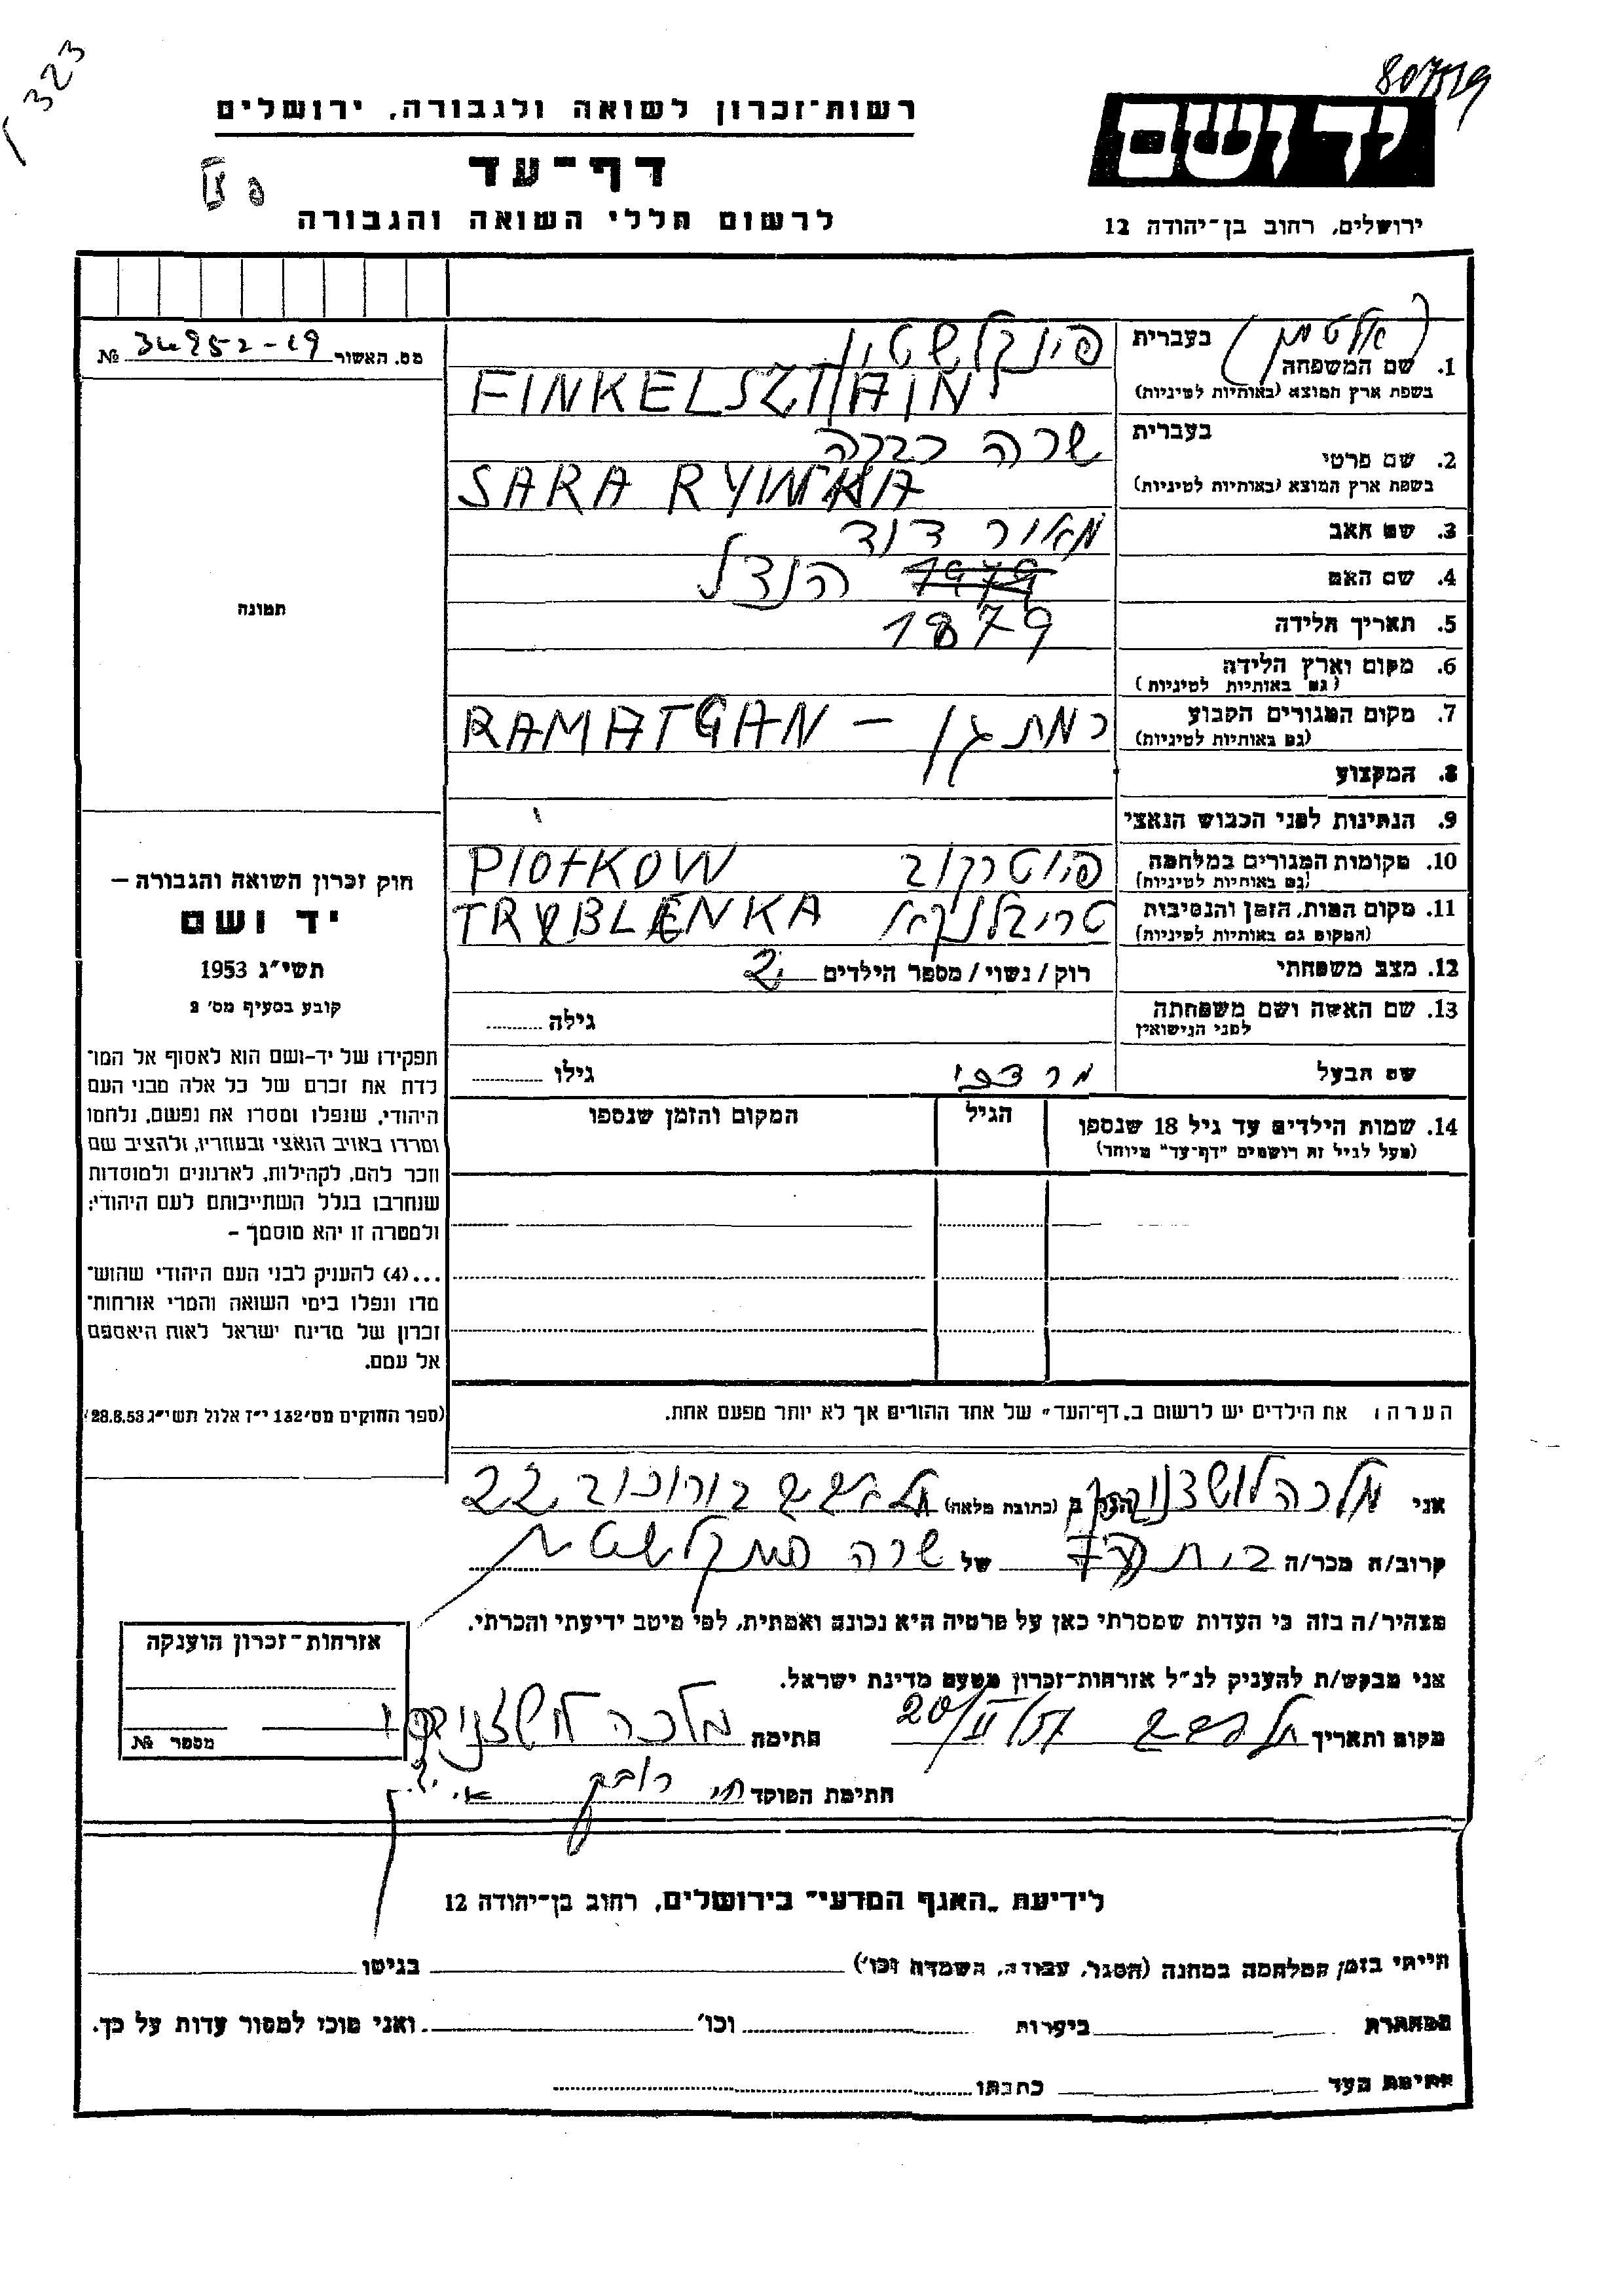 323
807519
רשות-זכרון לשואה ולגבורה, ירושלים
יד ושם
דף-עד
לרשום חללי השואה והגבורה
ירושלים, רחוב בן-יהודה 12
מס. האשור 34952-19 №
1. שם המשפחה בעברית (אלטמן) פינקלשטיין
בשפת ארץ המוצא (באותיות לטיניות) FINKELSZTAIN
2. שם פרטי בעברית שרה
בשפת ארץ המוצא (באותיות לטיניות) SARA
3. שם האב מאיר דוד
4. שם האם 1979 הנדל
5. תאריך הלידה 1879
6. מקום וארץ הלידה
(גם באותיות לטיניות)
7. מקום המגורים הקבוע רמת גן – RAMATGAN
(גם באותיות לטיניות)
8. המקצוע
9. הנתינות לפני הכבוש הנאצי
10. מקומות המגורים במלחמה פיוטרקוב PIOTKOW
(גם באותיות לטיניות)
11. מקום המות, הזמן והנסיבות טריבלנקא TRYBLENKA
(המקום גם באותיות לטיניות)
12. מצב משפחתי רוק/נשוי/מספר הילדים 2
13. שם האשה ושם משפחתה גילה
לפני הנישואין
שם הבעל מרדכי גילו
14. שמות הילדים עד גיל 18 שנספו הגיל המקום והזמן שנספו
(מעל לגיל זה רושמים "דף-עד" מיוחד)
תמונה
חוק זכרון השואה והגבורה –
יד ושם
תשי"ג 1953
קובע בסעיף מס' 2
תפקידו של יד-ושם הוא לאסוף אל המו־
לדת את זכרם של כל אלה מבני העם
היהודי, שנפלו ומסרו את נפשם, נלחמו
ומרדו באויב הנאצי ובעוזריו, ולהציב שם
וזכר להם, לקהילות, לארגונים ולמוסדות
שנחרבו בגלל השתייכותם לעם היהודי;
ולמטרה זו יהא מוסמך –
...(4) להעניק לבני העם היהודי שהוש־
מדו ונפלו בימי השואה והמרי אזרחות־
זכרון של מדינת ישראל לאות היאספם
אל עמם.
(ספר החוקים מס' 132 י"ז אלול תשי"ג 28.8.53)
הערה: את הילדים יש לרשום ב"דף-העד" של אחד ההורים אך לא יותר מפעם אחת.
אני מלכה הגר ב (כתובת מלאה) בורוכוב 22
קרוב/ה מכר/ה בת של שרה פינקלשטיין
מצהיר/ה בזה כי העדות שמסרתי כאן על פרטיה היא נכונה ואמתית, לפי מיטב ידיעתי והכרתי.
אני מבקש/ת להעניק לנ"ל אזרחות-זכרון מטעם מדינת ישראל.
מקום ותאריך 20/II 57 חתימה מלכה
חתימת הפוקד
אזרחות-זכרון הוענקה
מספר №
לידיעת "האגף המדעי" בירושלים, רחוב בן-יהודה 12
הייתי בזמן המלחמה במחנה (הסגר, עבודה, השמדה וכו') בגיטו
במחתרת ביערות וכו' ואני מוכן למסור עדות על כך.
חתימת העד כתבתו